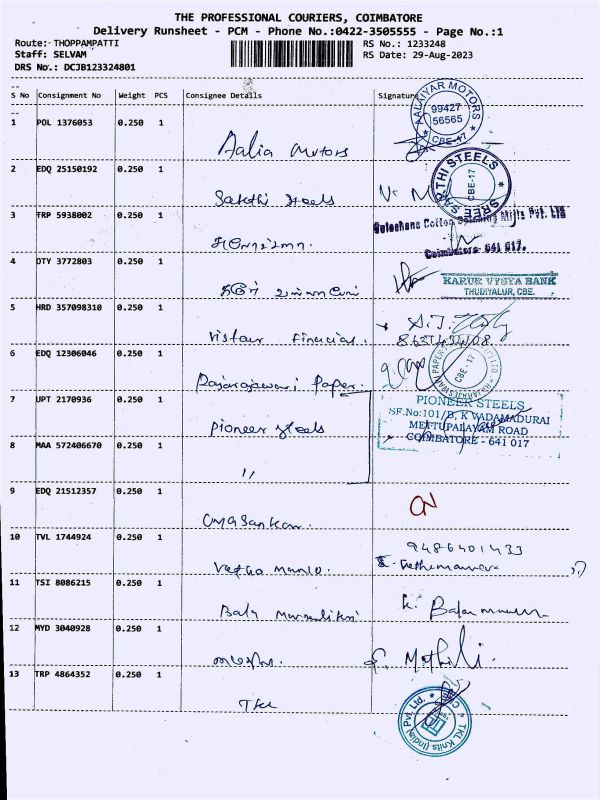 THE PROFESSIONAL COURIERS, COIMBATORE
Delivery Runsheet - PCM - Phone No.:0422-3505555 - Page No.:1
Route: THOPPAMPATTI
RS No.: 1233248
Staff: SELVAM
RS Date: 29-Aug-2023
DRS No.: DCJB123324801
S No Consignment No Weight PCS Consignee Details Signature
1 POL 1376053 0.250 1
AALAIYAR MOTORS
99427
56565
CBE-17
Aalia Motors
2 EDQ 25150192 0.250 1
SREE SAKTHI STEELS
CBE-17
Sakthi Steels
3 TRP 5938002 0.250 1
Sulochana Cotton Spinning Mills Pvt. Ltd
Coimbatore - 641 017.
4 OTY 3772803 0.250 1
KARUR VYSYA BANK
THUDIYALUR, CBE.
5 HRD 357098310 0.250 1
Vistaar Financial.
6 EDQ 12306046 0.250 1
CBE - 17
Rajarajeswari Paper.
7 UPT 2170936 0.250 1
PIONEER STEELS
SF.No:101/B, K VADAMADURAI
METTUPALAYAM ROAD
COIMBATORE - 641 017
Pioneer Steels
8 MAA 572406670 0.250 1
"
9 EDQ 21512357 0.250 1
Umasankar.
10 TVL 1744924 0.250 1
9486401433
11 TSI 8086215 0.250 1
Bala
K. Bala
12 MYD 3040928 0.250 1
Mothili.
13 TRP 4864352 0.250 1
TKL
TKL Knits (India) Pvt. Ltd.